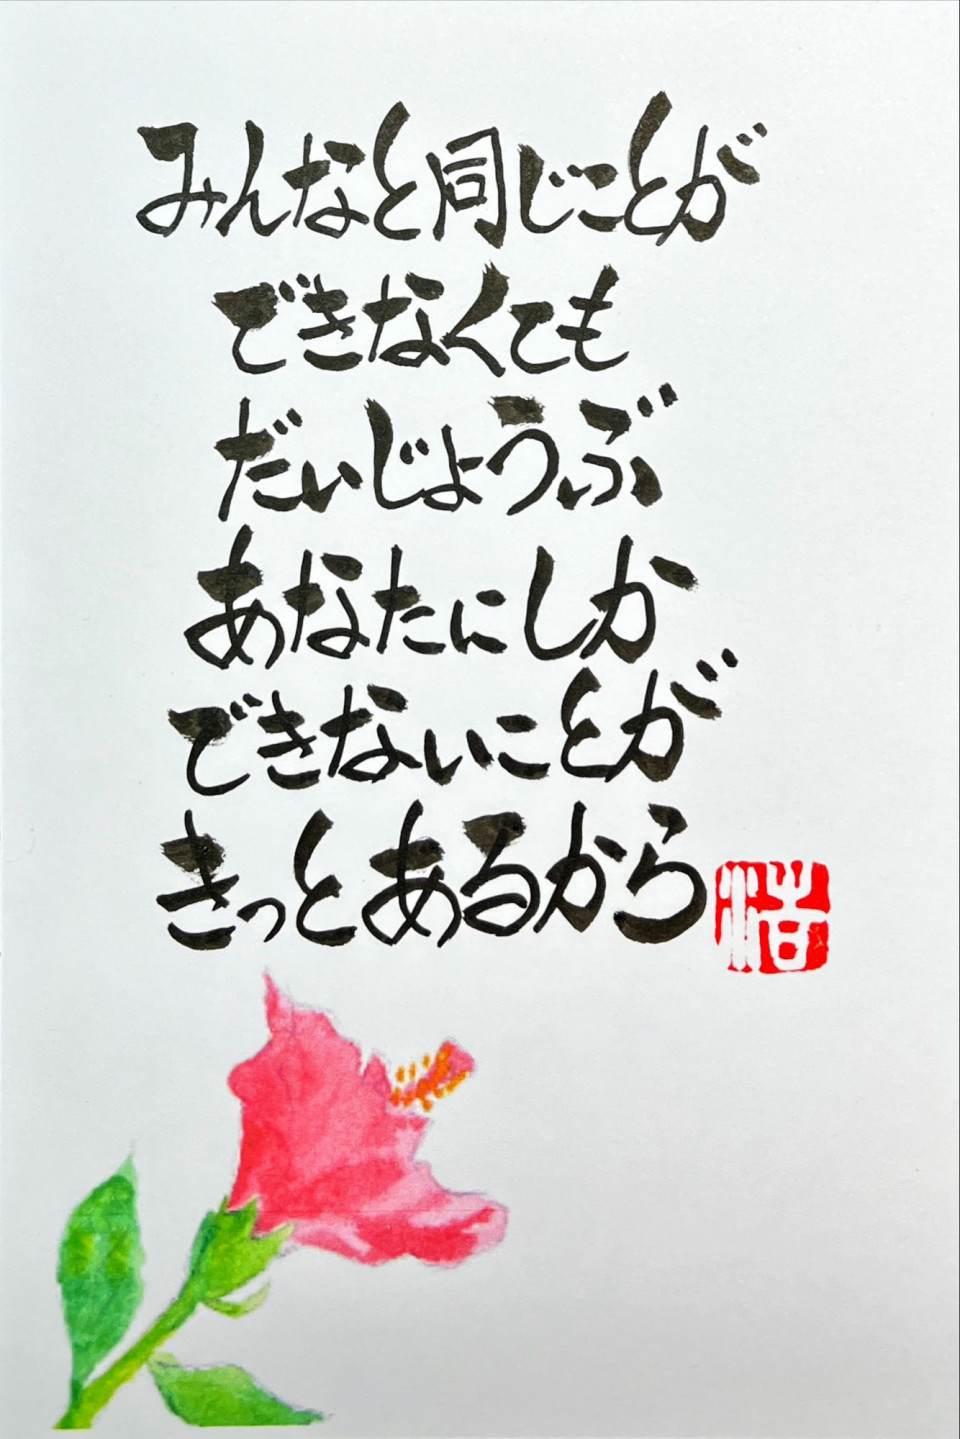 みんなと同じことが
できなくても
だいじょうぶ
あなたにしか
できないことが
きっとあるから